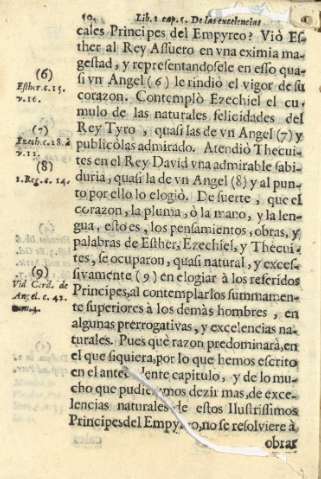 50. Lib. 1 cap. 5. De las excelencias
cales Principes del Empyreo? Viò Es
ther al Rey Assuero en vna eximia ma-
gestad, y representandosele en esso qua-
si vn Angel (6) le rindiò el vigor de su
corazon. Contemplò Ezechiel el cu-
mulo de las naturales felicidades del
Rey Tyro, quasi las de vn Angel (7) y
publicòlas admirado. Atendiò Thecui-
tes en el Rey David vna admirable sabi-
duria, quasi la de vn Angel (8) y al pun-
to por ello lo elogiò. De suerte, que el
corazon, la pluma, ò la mano, y la len-
gua, esto es, los pensamientos, obras, y
palabras de Esther, Ezechiel, y Thecui-
tes, se ocuparon, quasi natural, y exces-
sivamente (9) en elogiar à los referidos
Principes, al contemplarlos summamen-
te superiores à los demàs hombres, en
algunas prerrogativas, y excelencias na-
turales. Pues què razon predominarà, en
el que siquiera, por lo que hemos escrito
en el ante lente capitulo, y de lo mu-
cho que pudie mos dezir mas, de exce-
lencias naturales de estos Ilustrissimos
Principes del Empyreo, no se resolviere à
obrar
(6)
Esther. c. 15.
v. 16.
(7)
Ezech. c. 28. à
v. 12.
(8)
1. Reg. c. 14.
(9)
Vid Corn. de
Angel. c. 42.
num. 4.